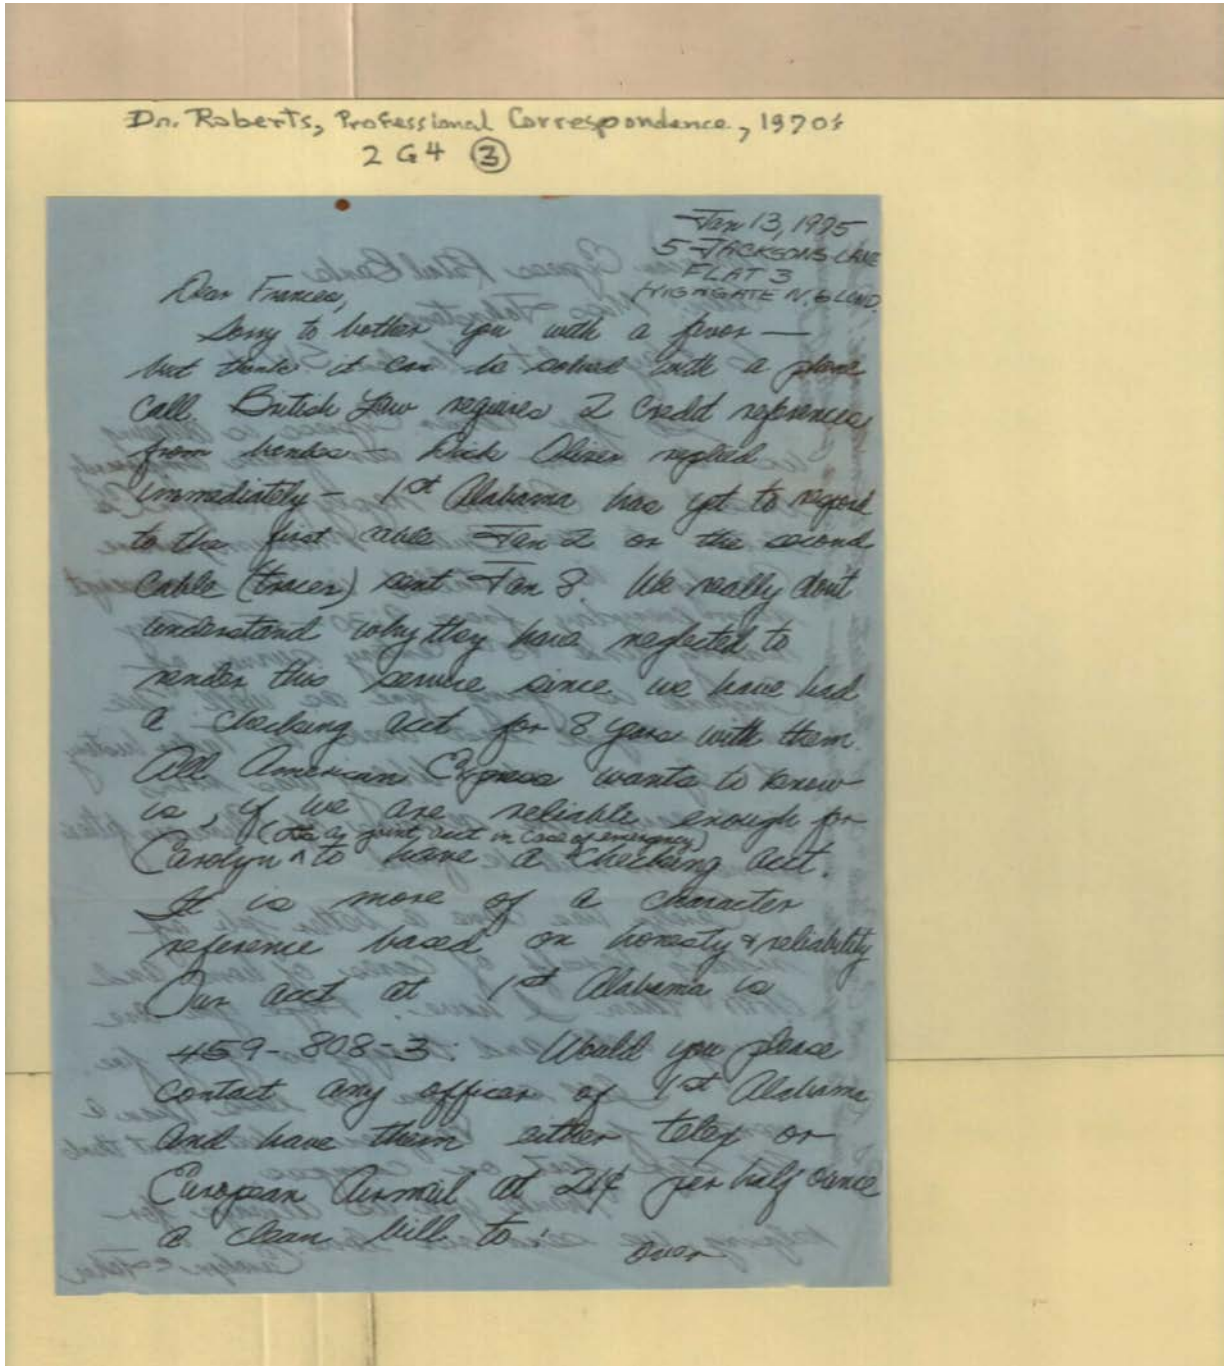 Dr. Roberts, Professional Correspondence, 1970's
2 G4 3
Jan 13, 1975
5 JACKSONS LANE
FLAT 3
HIGHGATE N. 6 LOND.
Dear Frances,
Sorry to bother you with a favor —
but think it can be solved with a phone
call. British Law requires 2 credit references
from banks — Dick replied
immediately — 1st Alabama has yet to respond
to the first cable Jan 2 or the second
cable (tracer) sent Jan 8. We really don't
understand why they have neglected to
render this service since we have had
a checking acct for 8 years with them.
All American Express wants to know
is, if we are reliable enough for
(as joint acct in case of emergency)
Carolyn ^ to have a checking acct.
It is more of a character
reference based on honesty & reliability
Our acct at 1st Alabama is
459-808-3. Would you please
contact any officer of 1st Alabama
and have them either telex or
European Airmail at 21¢ per half ounce
a clean bill to:
over